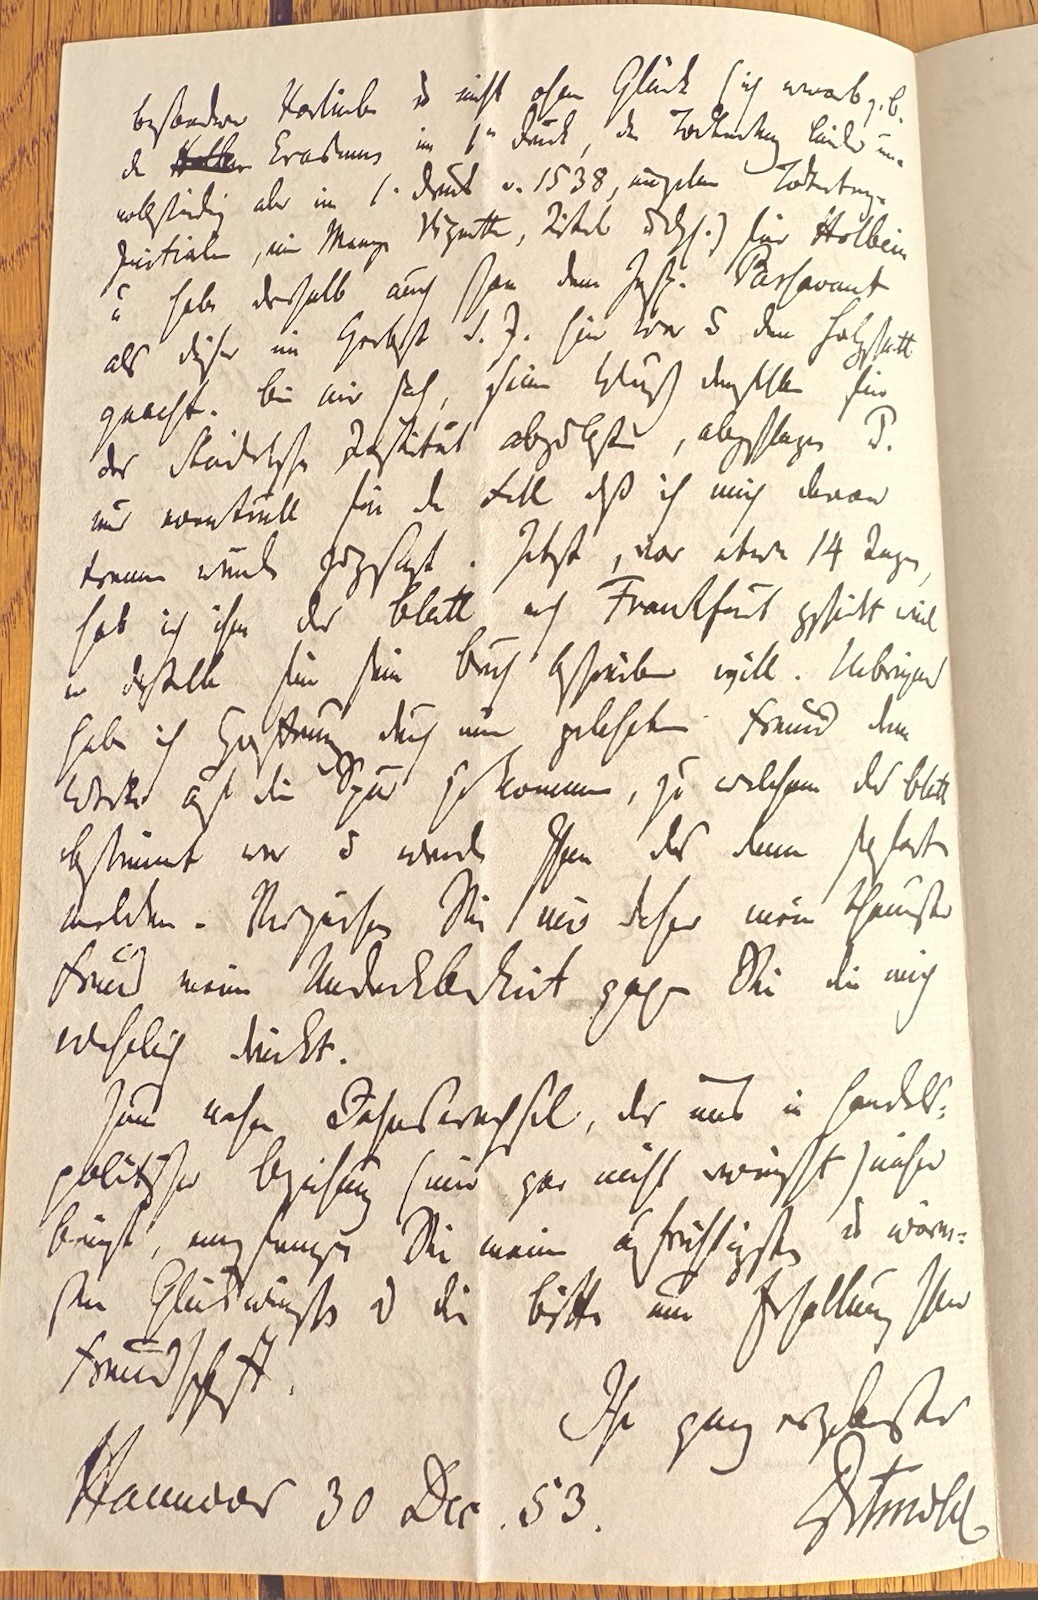 besondere Vorliebe u nicht ohne Glück (ich erwarb z. B.
den Erasmus im 1n Druck, den Todtentanz leider un-
vollständig aber im 1. Druck v. 1538, einzelne Todtentanz-
Initialen, eine Menge Vignetten, Titel u dgl.) für Holbein
u habe deshalb auch schon dem Insp. Passavant
als dieser im Herbst d. J. hier war u den Holzschnitt
bei mir sah, seinen Wunsch denselben für
das Städelsche Institut abzulassen, abgeschlagen u.
nur eventuell für den Fall daß ich mich davon
trennen würde zugesagt. Jetzt, vor etwa 14 Tagen,
hab ich ihm das Blatt nach Frankfurt geschickt weil
er dasselbe für sein Buch beschreiben will. Uebrigens
habe ich Hoffnung durch einen gelehrten Freund dem
Werke auf die Spur zu kommen, zu welchem das Blatt
bestimmt war u werde Ihnen das dann sofort
melden. Verzeihen Sie mir daher mein theuerster
Freund meine Undankbarkeit gegen Sie die mich
wahrlich drückt.
Zum nahen Jahreswechsel, der uns in handels-
politischer Beziehung (mir gar nicht erwünscht) näher
bringt, empfangen Sie meine aufrichtigsten u wärm-
sten Glückwünsche u die Bitte um Erhaltung Ihrer
Freundschaft.
Ihr ganz ergebenster
Hannover 30 Dec. 53. Detmold